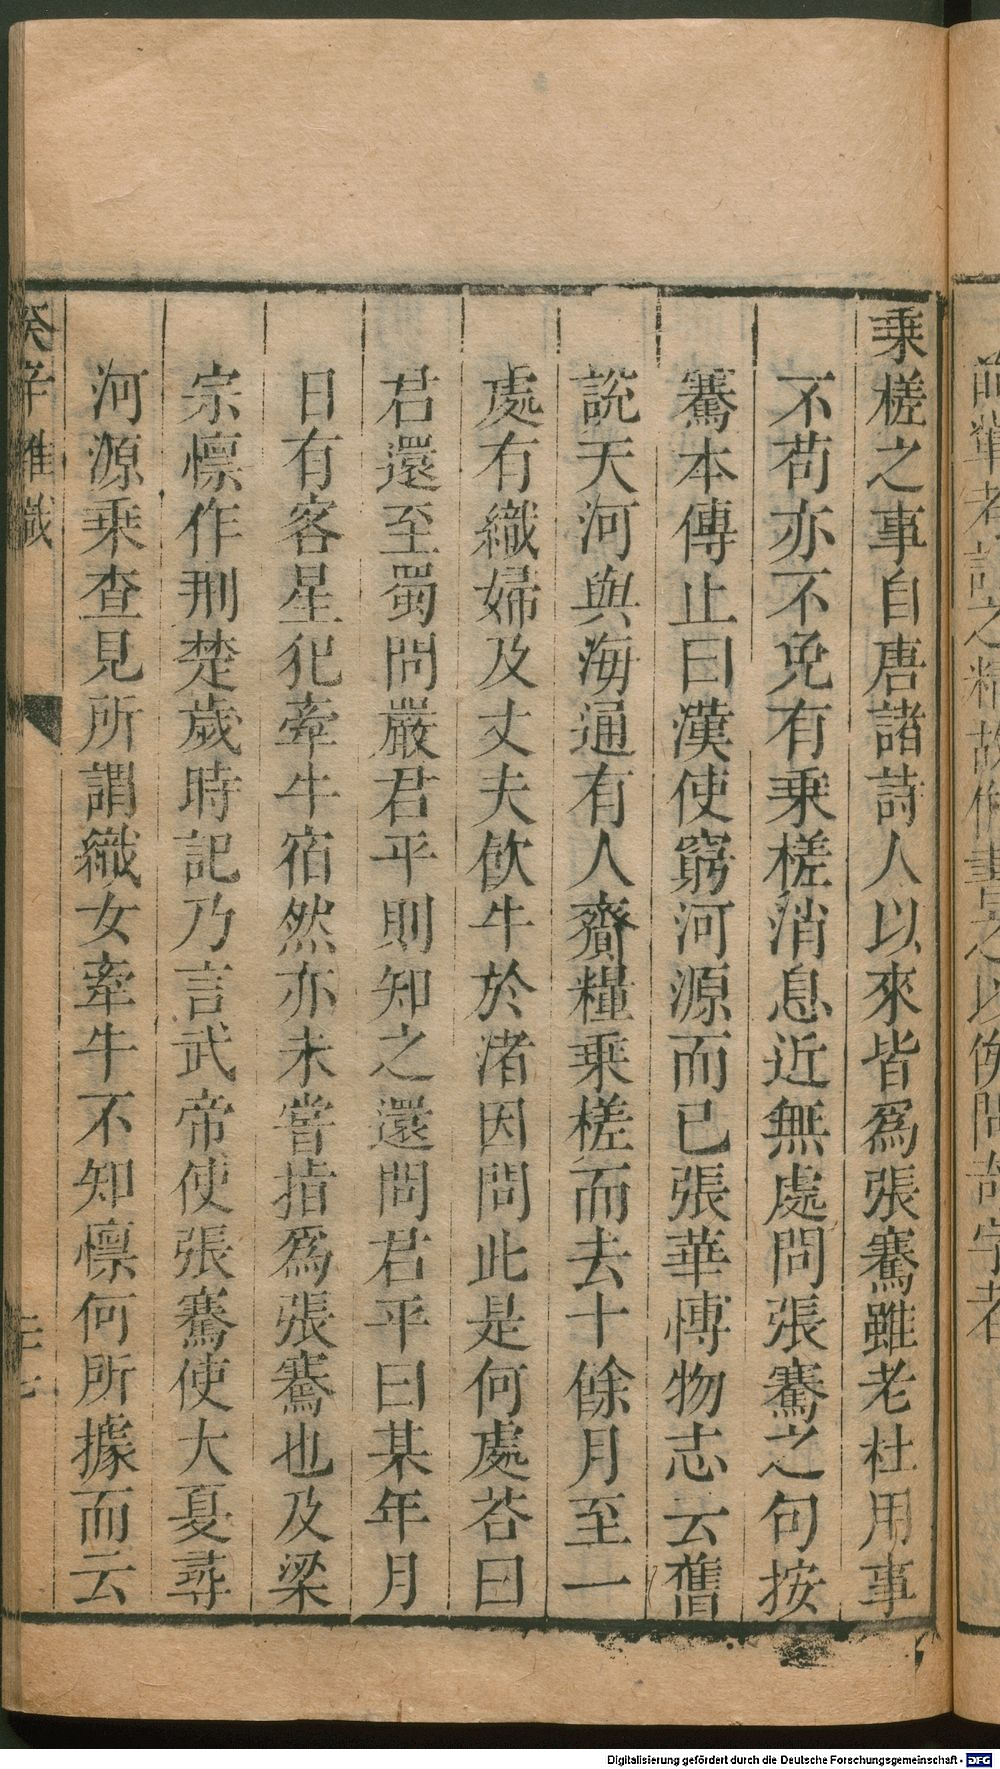 乘槎之事自唐諸詩人以來皆爲張騫雖老杜用事
不苟亦不免有乘槎消息近無處問張騫之句按
騫本傳止曰漢使窮河源而已張華博物志云舊
說天河與海通有人齎糧乘槎而去十餘月至一
處有織婦及丈夫飲牛於渚因問此是何處荅曰
君還至蜀問嚴君平則知之還問君平曰某年月
日有客星犯牽牛宿然亦未嘗指爲張騫也及梁
宗懍作荆楚歲時記乃言武帝使張騫使大夏尋
河源乘查見所謂織女牽牛不知懍何所據而云
癸辛雜識
二十七
Digitalisierung gefördert durch die Deutsche Forschungsgemeinschaft - DFG